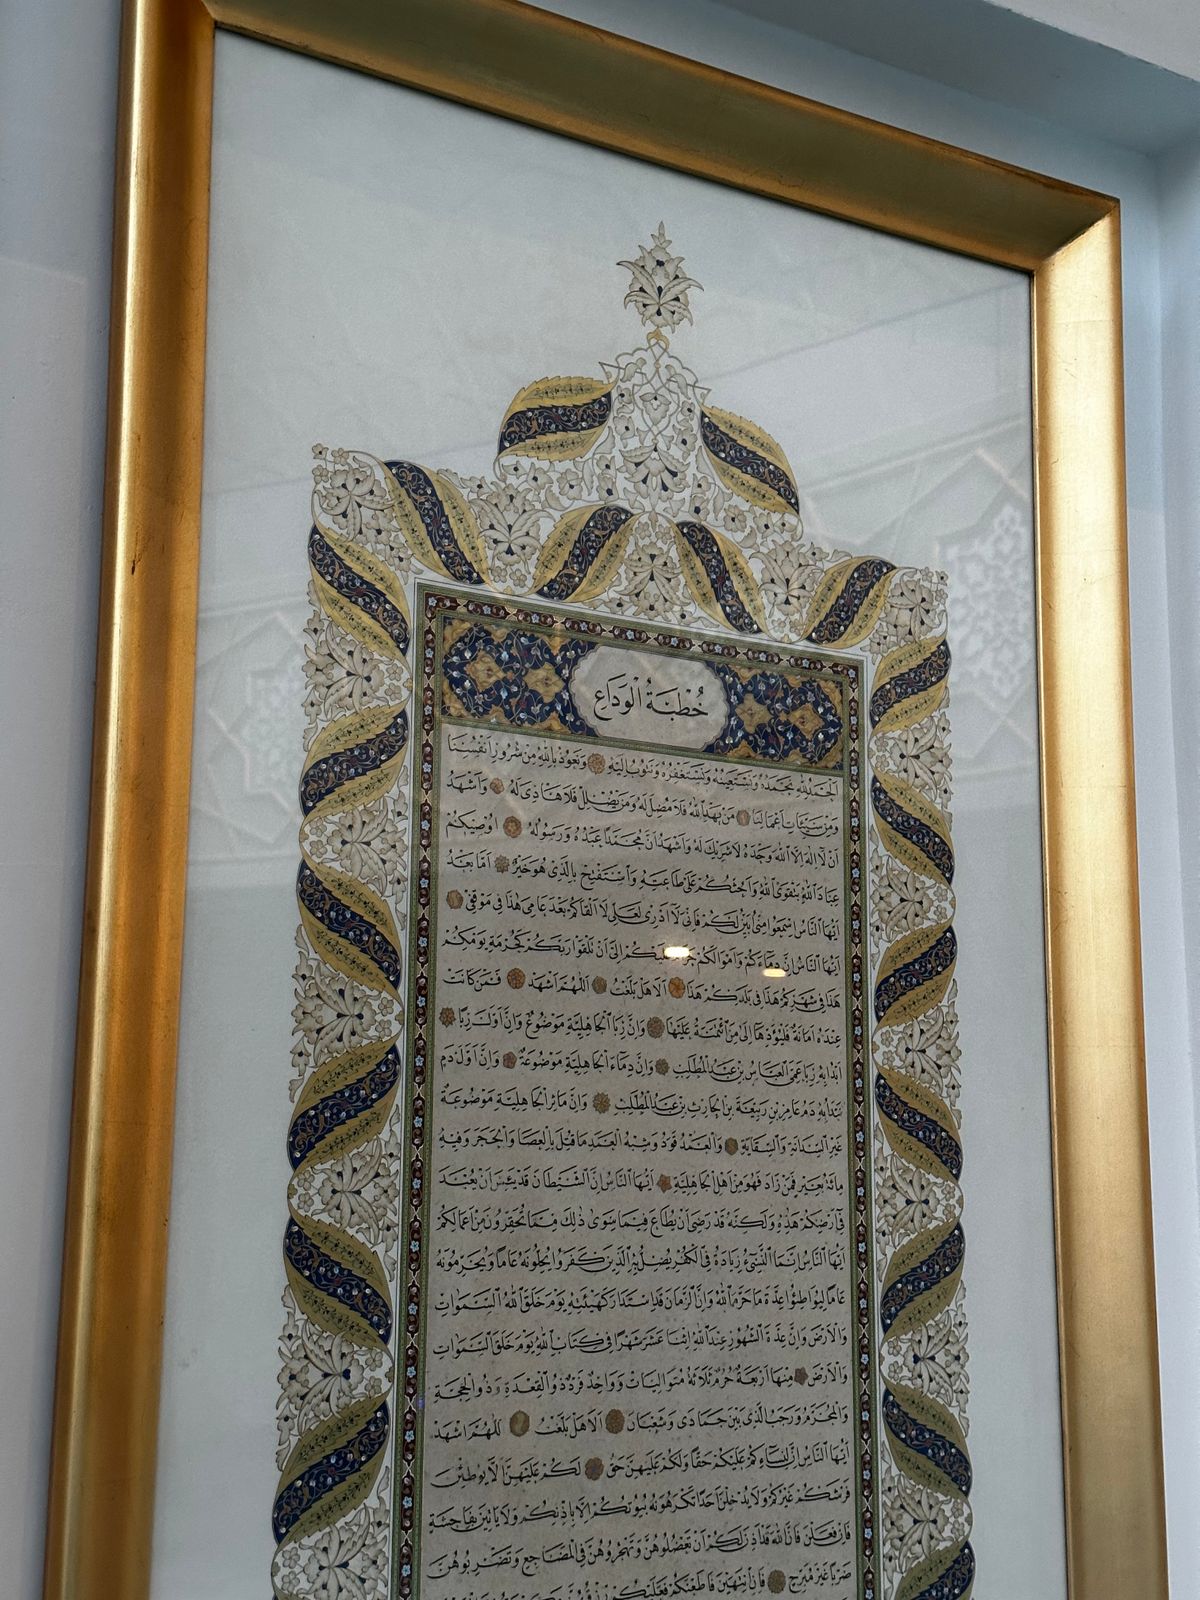 خُطْبَةُ الْوَدَاعِ
اَلْحَمْدُ لِلّٰهِ نَحْمَدُهُ وَنَسْتَعِينُهُ وَنَسْتَغْفِرُهُ وَنَتُوبُ اِلَيْهِ وَنَعُوذُ بِاللّٰهِ مِنْ شُرُورِ اَنْفُسِنَا
وَمِنْ سَيِّئَاتِ اَعْمَالِنَا مَنْ يَهْدِ اللّٰهُ فَلَا مُضِلَّ لَهُ وَمَنْ يُضْلِلْ فَلَا هَادِيَ لَهُ وَاَشْهَدُ
اَنْ لَا اِلٰهَ اِلَّا اللّٰهُ وَحْدَهُ لَا شَرِيكَ لَهُ وَاَشْهَدُ اَنَّ مُحَمَّدًا عَبْدُهُ وَرَسُولُهُ اُوصِيكُمْ
عِبَادَ اللّٰهِ بِتَقْوَى اللّٰهِ وَاَحُثُّكُمْ عَلَى طَاعَتِهِ وَاَسْتَفْتِحُ بِالَّذِي هُوَ خَيْرٌ اَمَّا بَعْدُ
اَيُّهَا النَّاسُ اِسْمَعُوا مِنِّي اُبَيِّنْ لَكُمْ فَاِنِّي لَا اَدْرِي لَعَلِّي لَا اَلْقَاكُمْ بَعْدَ عَامِي هٰذَا فِي مَوْقِفِي
اَيُّهَا النَّاسُ اِنَّ دِمَاءَكُمْ وَاَمْوَالَكُمْ عَلَيْكُمْ اِلَى اَنْ تَلْقَوْا رَبَّكُمْ كَحُرْمَةِ يَوْمِكُمْ
هٰذَا فِي شَهْرِكُمْ هٰذَا فِي بَلَدِكُمْ هٰذَا اَلَا هَلْ بَلَّغْتُ اَللّٰهُمَّ اشْهَدْ فَمَنْ كَانَتْ
عِنْدَهُ اَمَانَةٌ فَلْيُؤَدِّهَا اِلَى مَنِ ائْتَمَنَهُ عَلَيْهَا وَاِنَّ رِبَا الْجَاهِلِيَّةِ مَوْضُوعٌ وَاِنَّ اَوَّلَ رِبًا
اَبْدَأُ بِهِ رِبَا عَمِّيَ الْعَبَّاسِ بْنِ عَبْدِ الْمُطَّلِبِ وَاِنَّ دِمَاءَ الْجَاهِلِيَّةِ مَوْضُوعَةٌ وَاِنَّ اَوَّلَ دَمٍ
نَبْدَأُ بِهِ دَمُ عَامِرِ بْنِ رَبِيعَةَ بْنِ الْحَارِثِ بْنِ عَبْدِ الْمُطَّلِبِ وَاِنَّ مَآثِرَ الْجَاهِلِيَّةِ مَوْضُوعَةٌ
غَيْرَ السِّدَانَةِ وَالسِّقَايَةِ وَالْعَمْدُ قَوَدٌ وَشِبْهُ الْعَمْدِ مَا قُتِلَ بِالْعَصَا وَالْحَجَرِ وَفِيهِ
مِائَةُ بَعِيرٍ فَمَنْ زَادَ فَهُوَ مِنْ اَهْلِ الْجَاهِلِيَّةِ اَيُّهَا النَّاسُ اِنَّ الشَّيْطَانَ قَدْ يَئِسَ اَنْ يُعْبَدَ
فِي اَرْضِكُمْ هٰذِهِ وَلٰكِنَّهُ قَدْ رَضِيَ اَنْ يُطَاعَ فِيمَا سِوَى ذٰلِكَ مِمَّا تُحَقِّرُونَ مِنْ اَعْمَالِكُمْ
اَيُّهَا النَّاسُ اِنَّمَا النَّسِيءُ زِيَادَةٌ فِي الْكُفْرِ يُضَلُّ بِهِ الَّذِينَ كَفَرُوا يُحِلُّونَهُ عَامًا وَيُحَرِّمُونَهُ
عَامًا لِيُوَاطِئُوا عِدَّةَ مَا حَرَّمَ اللّٰهُ وَاِنَّ الزَّمَانَ قَدِ اسْتَدَارَ كَهَيْئَتِهِ يَوْمَ خَلَقَ اللّٰهُ السَّمٰوَاتِ
وَالْاَرْضَ وَاِنَّ عِدَّةَ الشُّهُورِ عِنْدَ اللّٰهِ اثْنَا عَشَرَ شَهْرًا فِي كِتَابِ اللّٰهِ يَوْمَ خَلَقَ السَّمٰوَاتِ
وَالْاَرْضَ مِنْهَا اَرْبَعَةٌ حُرُمٌ ثَلَاثَةٌ مُتَوَالِيَاتٌ وَوَاحِدٌ فَرْدٌ ذُو الْقَعْدَةِ وَذُو الْحِجَّةِ
وَالْمُحَرَّمُ وَرَجَبُ الَّذِي بَيْنَ جُمَادَى وَشَعْبَانَ اَلَا هَلْ بَلَّغْتُ اَللّٰهُمَّ اشْهَدْ
اَيُّهَا النَّاسُ اِنَّ لِنِسَائِكُمْ عَلَيْكُمْ حَقًّا وَلَكُمْ عَلَيْهِنَّ حَقٌّ لَكُمْ عَلَيْهِنَّ اَلَّا يُوطِئْنَ
فُرُشَكُمْ غَيْرَكُمْ وَلَا يُدْخِلْنَ اَحَدًا تَكْرَهُونَهُ بُيُوتَكُمْ اِلَّا بِاِذْنِكُمْ وَلَا يَأْتِينَ بِفَاحِشَةٍ
فَاِنْ فَعَلْنَ فَاِنَّ اللّٰهَ قَدْ اَذِنَ لَكُمْ اَنْ تَعْضُلُوهُنَّ وَتَهْجُرُوهُنَّ فِي الْمَضَاجِعِ وَتَضْرِبُوهُنَّ
ضَرْبًا غَيْرَ مُبَرِّحٍ فَاِنِ انْتَهَيْنَ وَاَطَعْنَكُمْ فَعَلَيْكُمْ